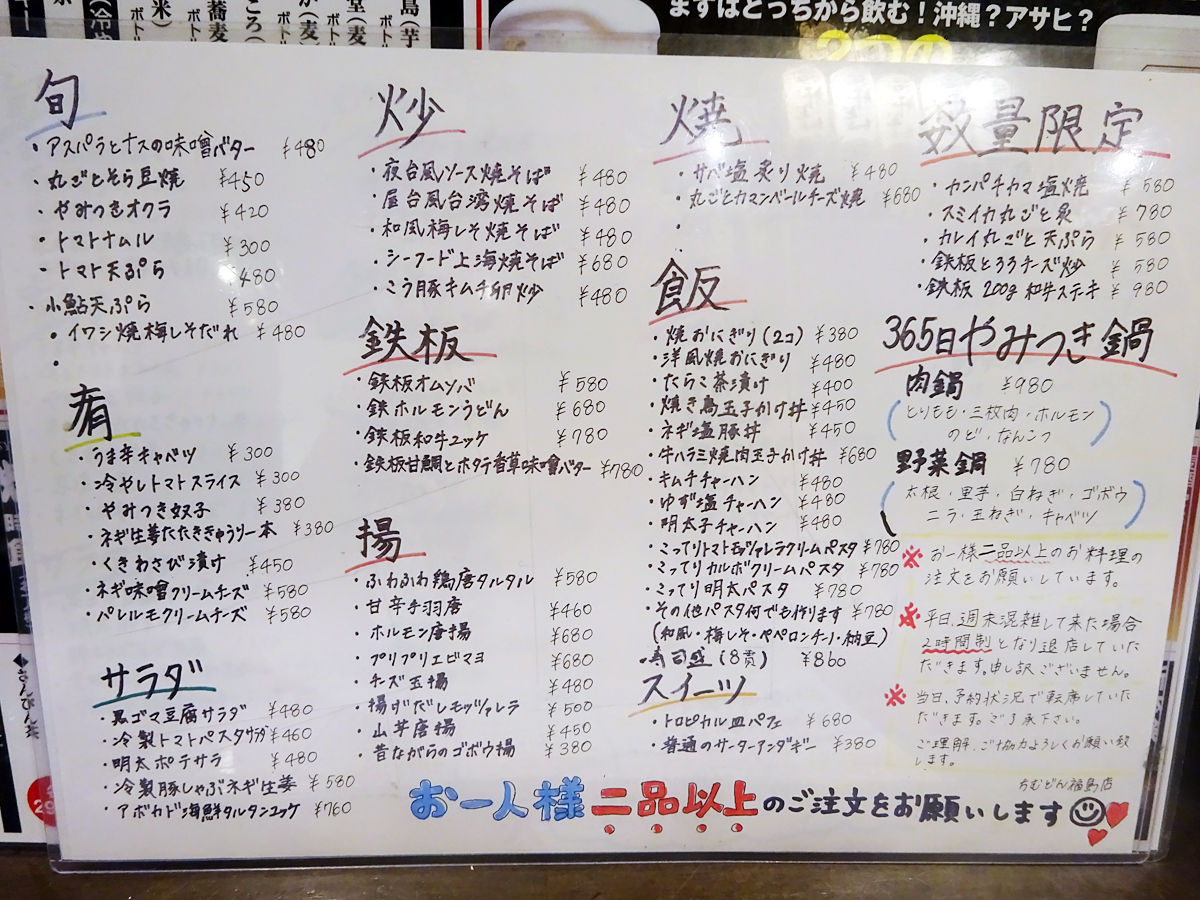 まずはどっちから飲む！沖縄？アサヒ？
旬
・アスパラとナスの味噌バター ¥480
・丸ごとそら豆焼 ¥450
・やみつきオクラ ¥420
・トマトナムル ¥300
・トマト天ぷら ¥480
・小鮎天ぷら ¥580
・イワシ焼梅しそだれ ¥480
・
肴
・うま辛キャベツ ¥300
・冷やしトマトスライス ¥300
・やみつき奴子 ¥380
・ネギ生姜たたききゅうり一本 ¥380
・くきわさび漬け ¥450
・ネギ味噌クリームチーズ ¥580
・パレルモクリームチーズ ¥580
サラダ
・黒ゴマ豆腐サラダ ¥480
・冷製トマトパスタサラダ ¥460
・明太ポテサラ ¥480
・冷製豚しゃぶネギ生姜 ¥580
・アボカド海鮮タルタンユッケ ¥760
炒
・夜台風ソース焼そば ¥480
・屋台風台湾焼そば ¥480
・和風梅しそ焼そば ¥480
・シーフード上海焼そば ¥680
・こう豚キムチ卵炒 ¥480
鉄板
・鉄板オムソバ ¥580
・鉄ホルモンうどん ¥680
・鉄板和牛ユッケ ¥780
・鉄板甘鯛とホタテ香草味噌バター ¥780
揚
・ふわふわ鶏唐タルタル ¥580
・甘辛手羽唐 ¥460
・ホルモン唐揚 ¥680
・プリプリエビマヨ ¥680
・チーズ玉揚 ¥480
・揚げだしモッツァレラ ¥500
・山芋唐揚 ¥450
・昔ながらのゴボウ揚 ¥380
焼
・サバ塩炙り焼 ¥480
・丸ごとカマンベールチーズ焼 ¥680
・
・
飯
・焼おにぎり(2コ) ¥380
・洋風焼おにぎり ¥480
・たらこ茶漬け ¥400
・焼き鳥玉子かけ丼 ¥450
・ネギ塩豚丼 ¥450
・牛ハラミ焼肉玉子かけ丼 ¥680
・キムチチャーハン ¥480
・ゆず塩チャーハン ¥480
・明太子チャーハン ¥480
・こってりトマトモッツァレラクリームパスタ ¥780
・こってりカルボクリームパスタ ¥780
・こってり明太パスタ ¥780
・その他パスタ何でも作ります ¥780
(和風・梅しそ・ペペロンチーノ・納豆)
・寿司盛(8貫) ¥860
スイーツ
・トロピカル皿パフェ ¥680
・普通のサーターアンダギー ¥380
数量限定
・カンパチカマ塩焼 ¥580
・スミイカ丸ごと炙 ¥780
・カレイ丸ごと天ぷら ¥580
・鉄板とろろチーズ炒 ¥580
・鉄板200g和牛ステーキ ¥980
365日やみつき鍋
肉鍋 ¥980
(とりもも・三枚肉・ホルモン
のど・なんこつ)
野菜鍋 ¥780
(大根・里芋・白ねぎ・ゴボウ
ニラ・玉ねぎ・キャベツ)
※お一様二品以上のお料理の
注文をお願いしています。
※平日、週末混雑して来た場合
2時間制となり退店していた
だきます。申し訳ございません。
※当日、予約状況で転席していた
だきます。ご了承下さい。
ご理解、ご協力よろしくお願い致
します。
ちむどん福島店
お一人様二品以上のご注文をお願いします